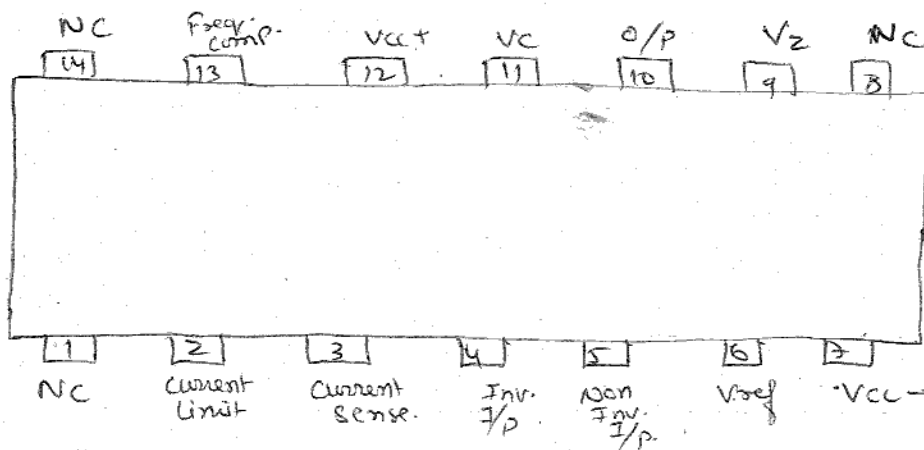 NC
Freq.
comp.
VCC+
VC
O/P
VZ
NC
14
13
12
11
10
9
8
1
2
3
4
5
6
7
NC
Current
Limit
Current
Sense.
Inv.
I/p
Non
Inv.
I/p.
Vref
VCC-